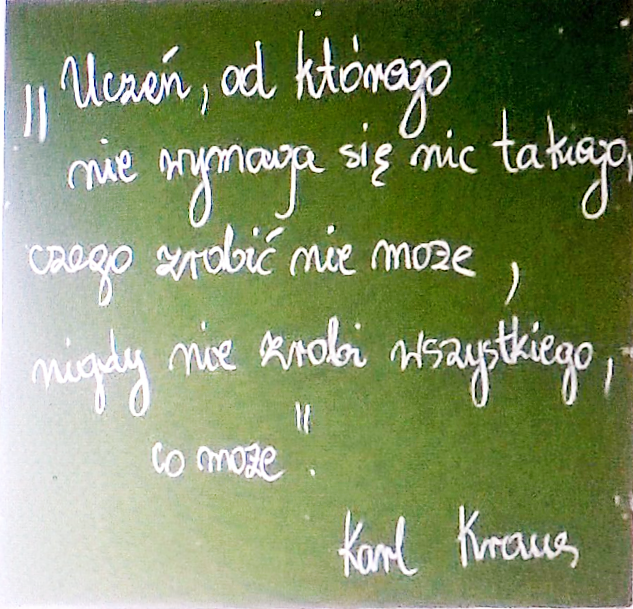 „Uczeń, od którego
nie wymaga się nic takiego,
czego zrobić nie może,
nigdy nie zrobi wszystkiego,
co może".
Karl Kraus